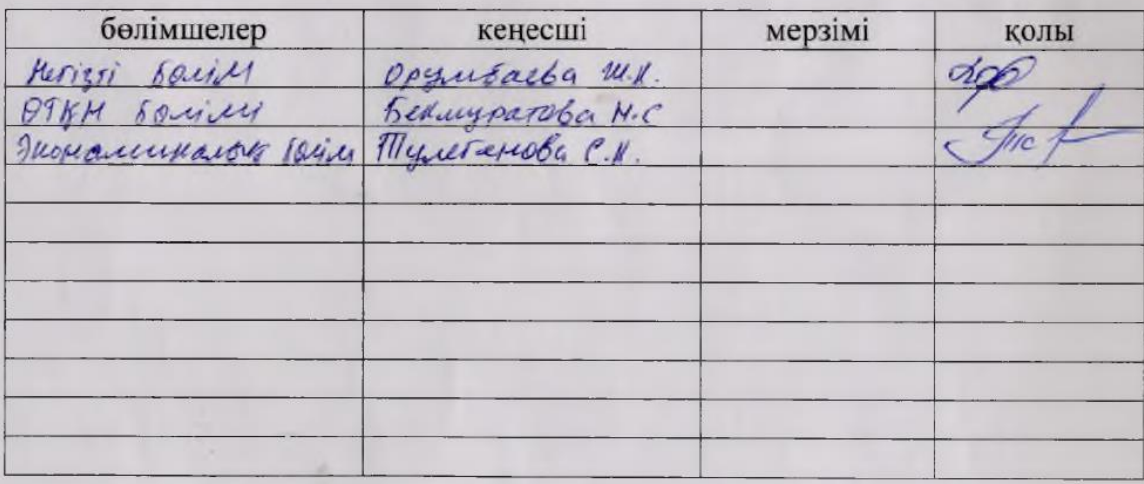 бөлімшелер кеңесші мерзімі қолы
Негізгі бөлім Орумбаева Ш.К.
ӨТҚН бөлімі Бекмуратова Н.С
Экономикалық бөлім Тулегенова С.К.